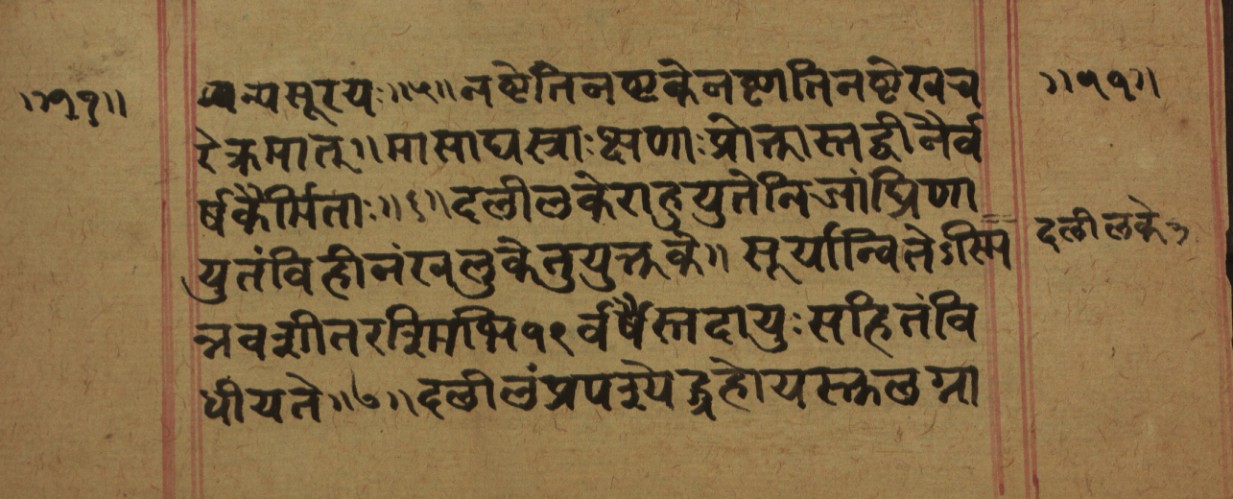 ॥११॥
व्यन्यसूरयः॥५॥नष्टेतिनष्टकेनष्णतिनष्टेखच
॥११॥
रेक्रमात्॥मासाघस्त्राःक्षणाःप्रोक्तास्तद्वीनैर्व
र्षकैर्मिताः॥६॥दलीलकेराहुयुतेनिजांघ्रिणा
युतंविहीनंखलुकेतुयुक्तके॥सूर्यान्वितेऽस्मि
दलीलके३
न्नवशीतरश्मिभि१९र्वर्षैस्तदायुःसहितंवि
धीयते॥७॥दलीलंप्रपश्येद्ग्रहोयस्तलग्ना